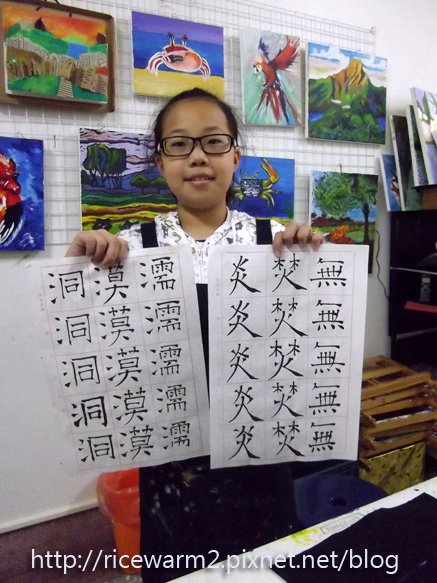 濡濡濡濡濡
漠漠漠漠漠
洞洞洞洞洞
無無無無無
焚焚焚焚焚
炎炎炎炎炎
http://ricewarm2.pixnet.net/blog